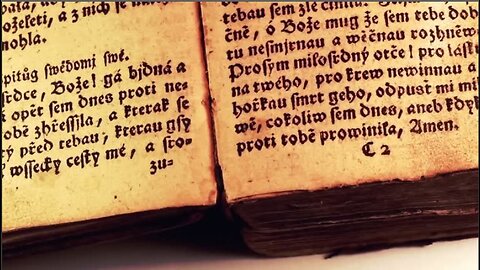 a z nich se
nohla.
spituġ swědomj swé.
srdce, Bože! gá bjdná a
opět sem dnes proti ne-
tobě zhřessila, a kterak se
před tebau, kterau gsy
wssecky cesty mé, a sro-
zu-
tebau sem zle činila.
čně, ó Bože můg že sem tebe dob-
tu nesmjrnau a wěčnau rozhněw
Prosym milosrdný otče! pro lásku
na twého, pro krew newinnau a
hořkau smrt geho, odpust mi mi
wě, cokoliw sem dnes, aneb kdyk
proti tobě prowinila, Amen.
C 2